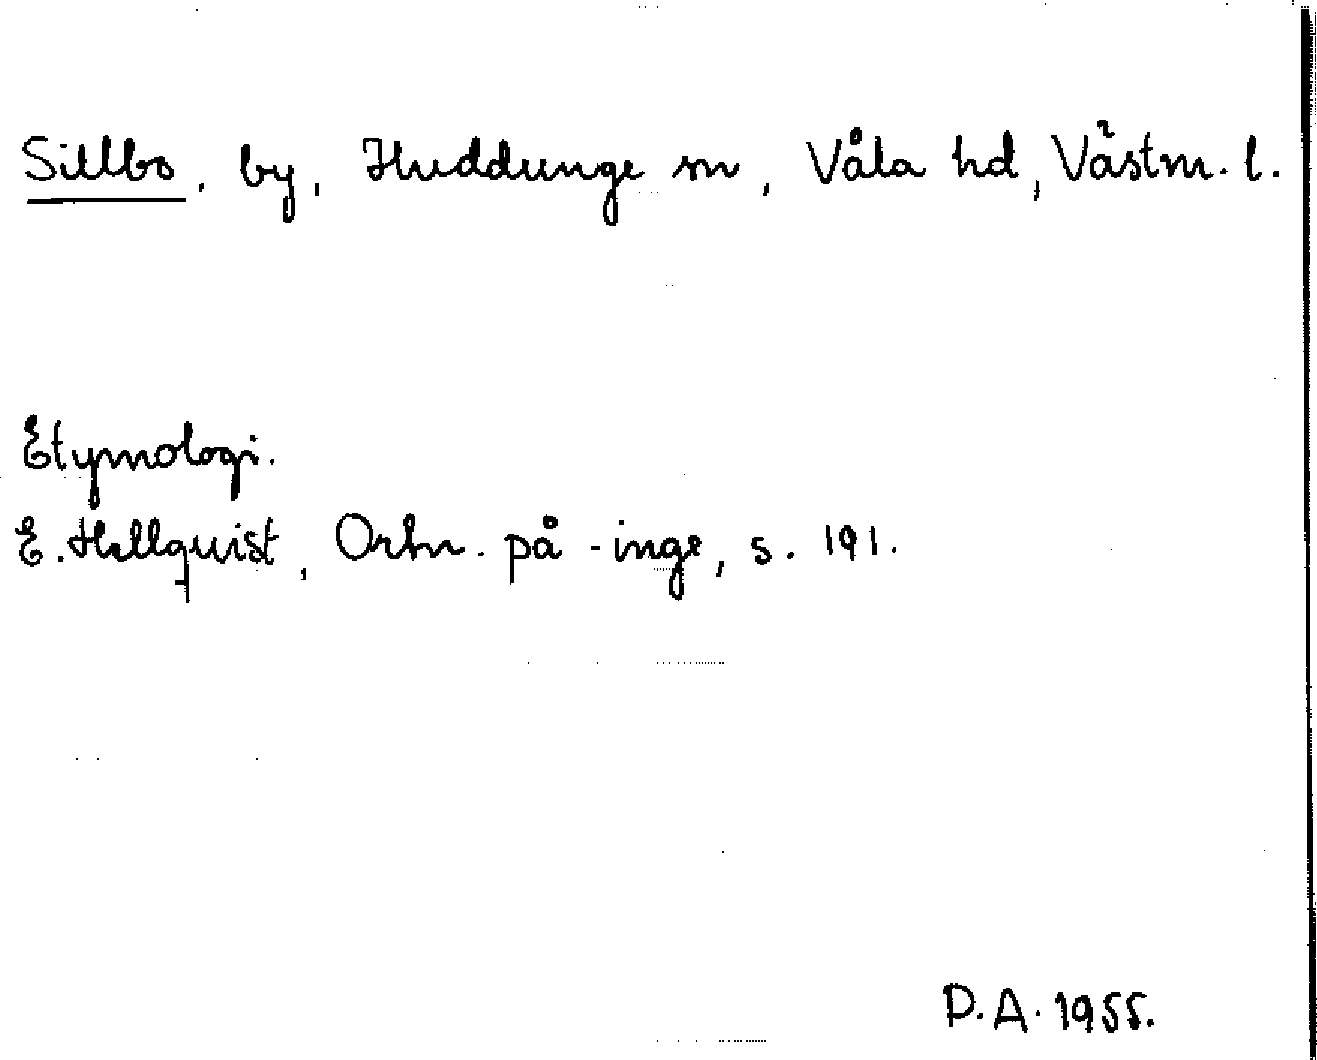 Sillbo, by, Huddunge sn, Våla hd, Västm. l.
Etymologi.
E. Hellquist, Ortn. på -inge, s. 191.
P.A. 1955.